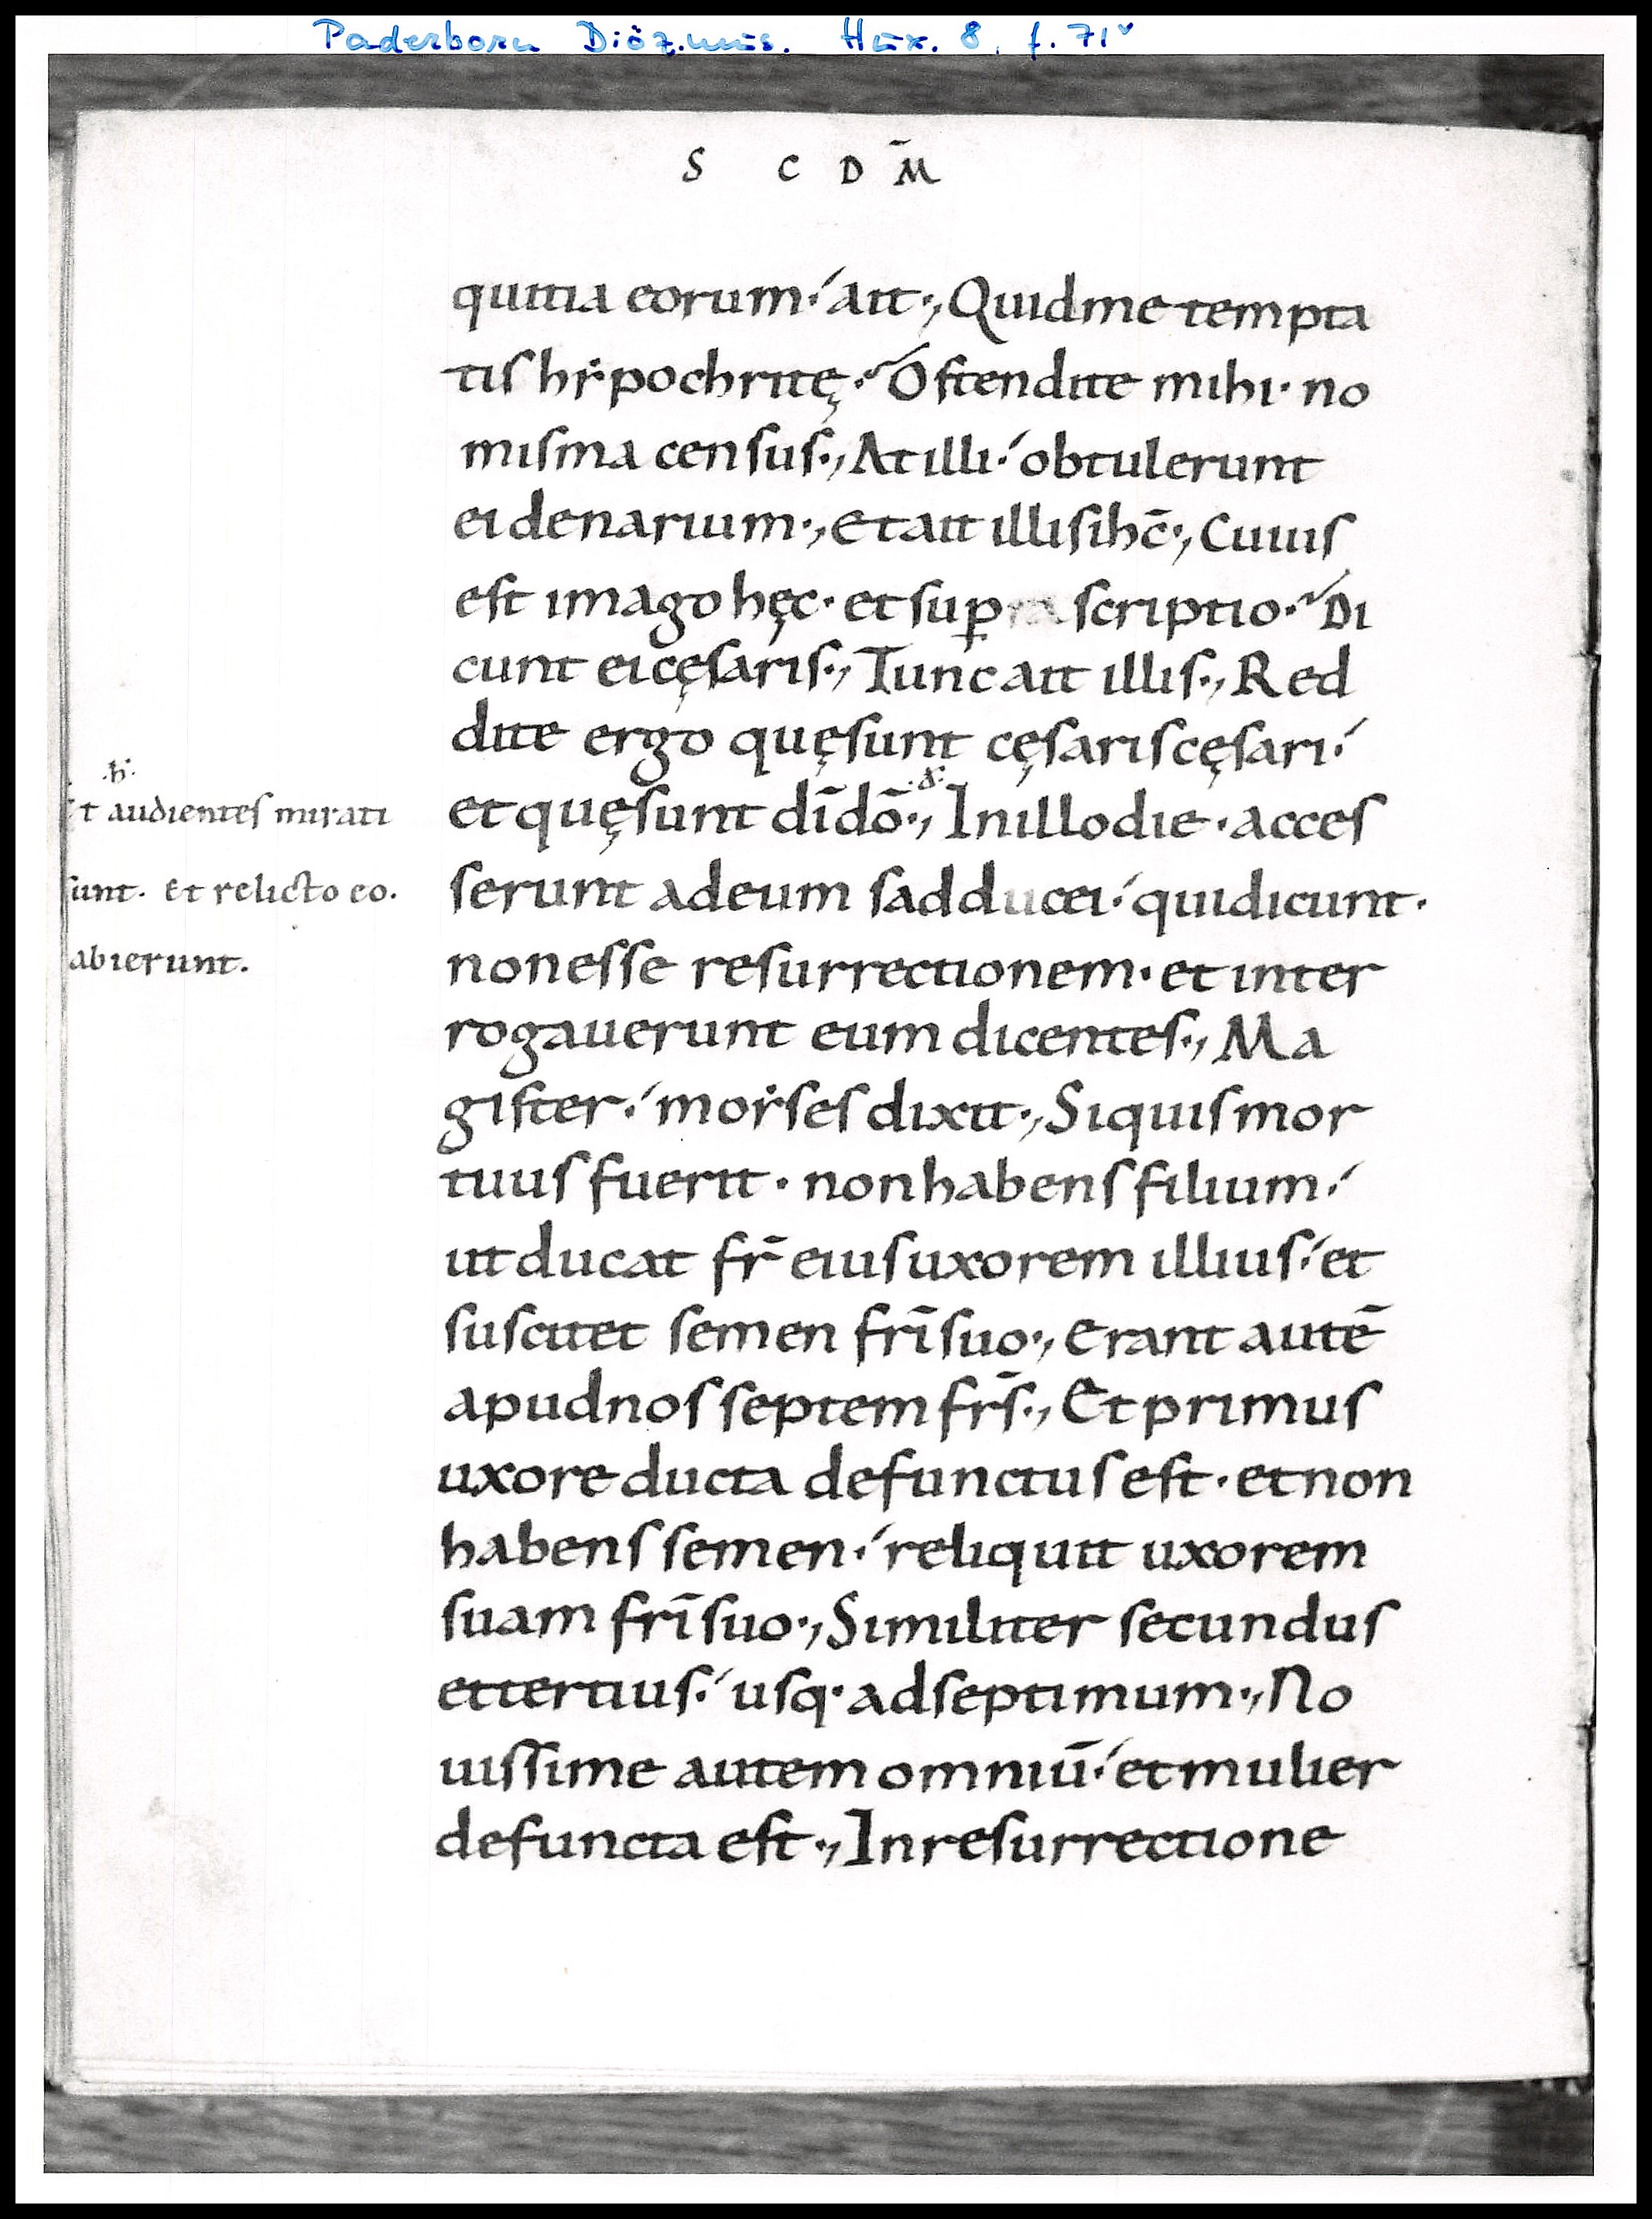 Paderborn Diöz.mus. Hux. 8, f. 71v
S C D M̄
quitia eorum ait Quid me tempta
tis hẏpochritę Ostendite mihi no
misma census At illi obtulerunt
ei denarium Et ait illis ihc̄ Cuius
est imago hęc et sup̱ra scriptio Di
cunt ei cęsaris Tunc ait illis Red
dite ergo quę sunt cęsaris cęsari
et quę sunt dī dō In illo die acces
serunt ad eum sadducei qui dicunt
non esse resurrectionem et inter
rogauerunt eum dicentes Ma
gister moẏses dixit Si quis mor
tuus fuerit non habens filium
ut ducat fr̄ eius uxorem illius et
suscitet semen frī suo Erant autē
apud nos septem fr̄s Et primus
uxore ducta defunctus est et non
habens semen reliquit uxorem
suam frī suo Similiter secundus
et tertius usq· ad septimum No
uissime autem omniū et mulier
defuncta est In resurrectione
·h·
Et audientes mirati
sunt. Et relicto eo.
abierunt.